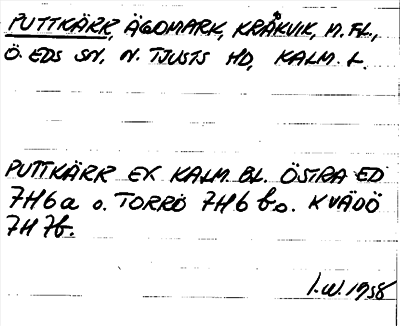 PUTTKÄRR, ÄGDMARK, KRÅKVIK, M. FL.,
Ö. EDS SN, N. TJUSTS HD, KALM. L.
PUTTKÄRR EK KALM. BL. ÖSTRA ED
7H6a o. TORRÖ 7H6b o. KVÄDÖ
7H7b.
I.W. 1958